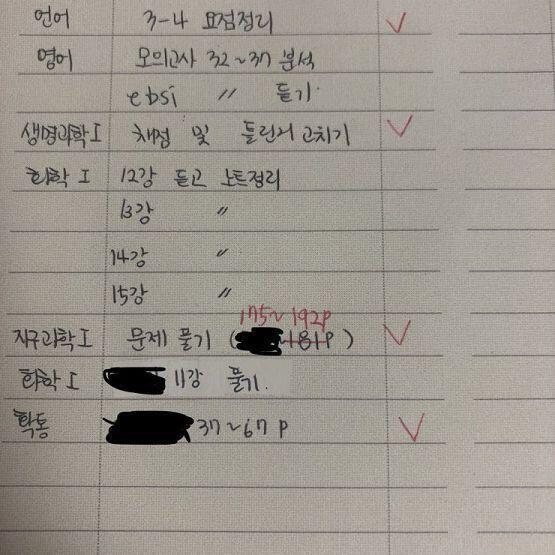 언어 3-4 요점정리 ✓
영어 모의고사 32~37 분석
ebsi 〃 듣기
생명과학I 채점 및 틀린거 고치기 ✓
화학 I 12강 듣고 노트정리
13강 〃
14강 〃
15강 〃
175~192p
지구과학I 문제 풀기 ( ~181P ) ✓
화학 I 11강 풀기.
학동 37~67 P ✓